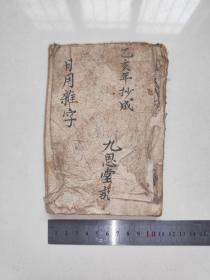 乙亥年抄成
日用雜字
九思堂
1 2 3 4 5 6 7 8 9 10 11 12 13 14